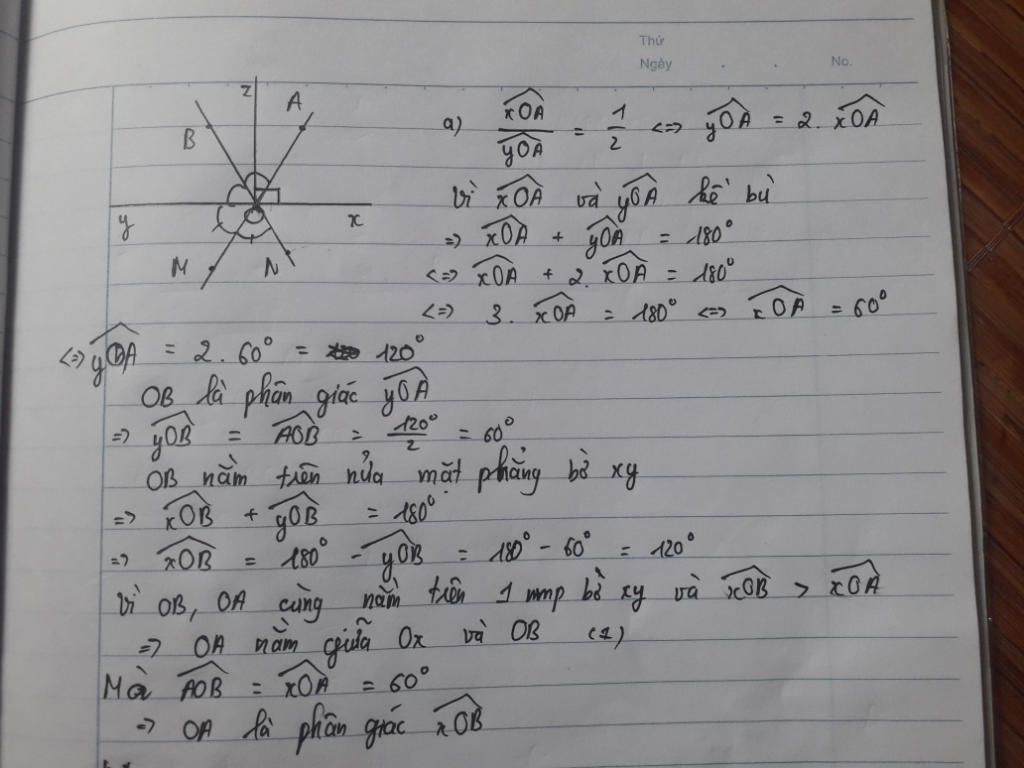 Thứ
Ngày . . No.
z A
B
y x
M N
a) xOA / yOA = 1/2 <=> yOA = 2. xOA
Vì xOA và yOA kề bù
=> xOA + yOA = 180°
<=> xOA + 2. xOA = 180°
<=> 3. xOA = 180° <=> xOA = 60°
<=> yOA = 2. 60° = 120°
OB là phân giác yOA
=> yOB = AOB = 120°/2 = 60°
OB nằm trên nửa mặt phẳng bờ xy
=> xOB + yOB = 180°
=> xOB = 180° - yOB = 180° - 60° = 120°
Vì OB, OA cùng nằm trên 1 nmp bờ xy và xOB > xOA
=> OA nằm giữa Ox và OB (1)
Mà AOB = xOA = 60°
=> OA là phân giác xOB